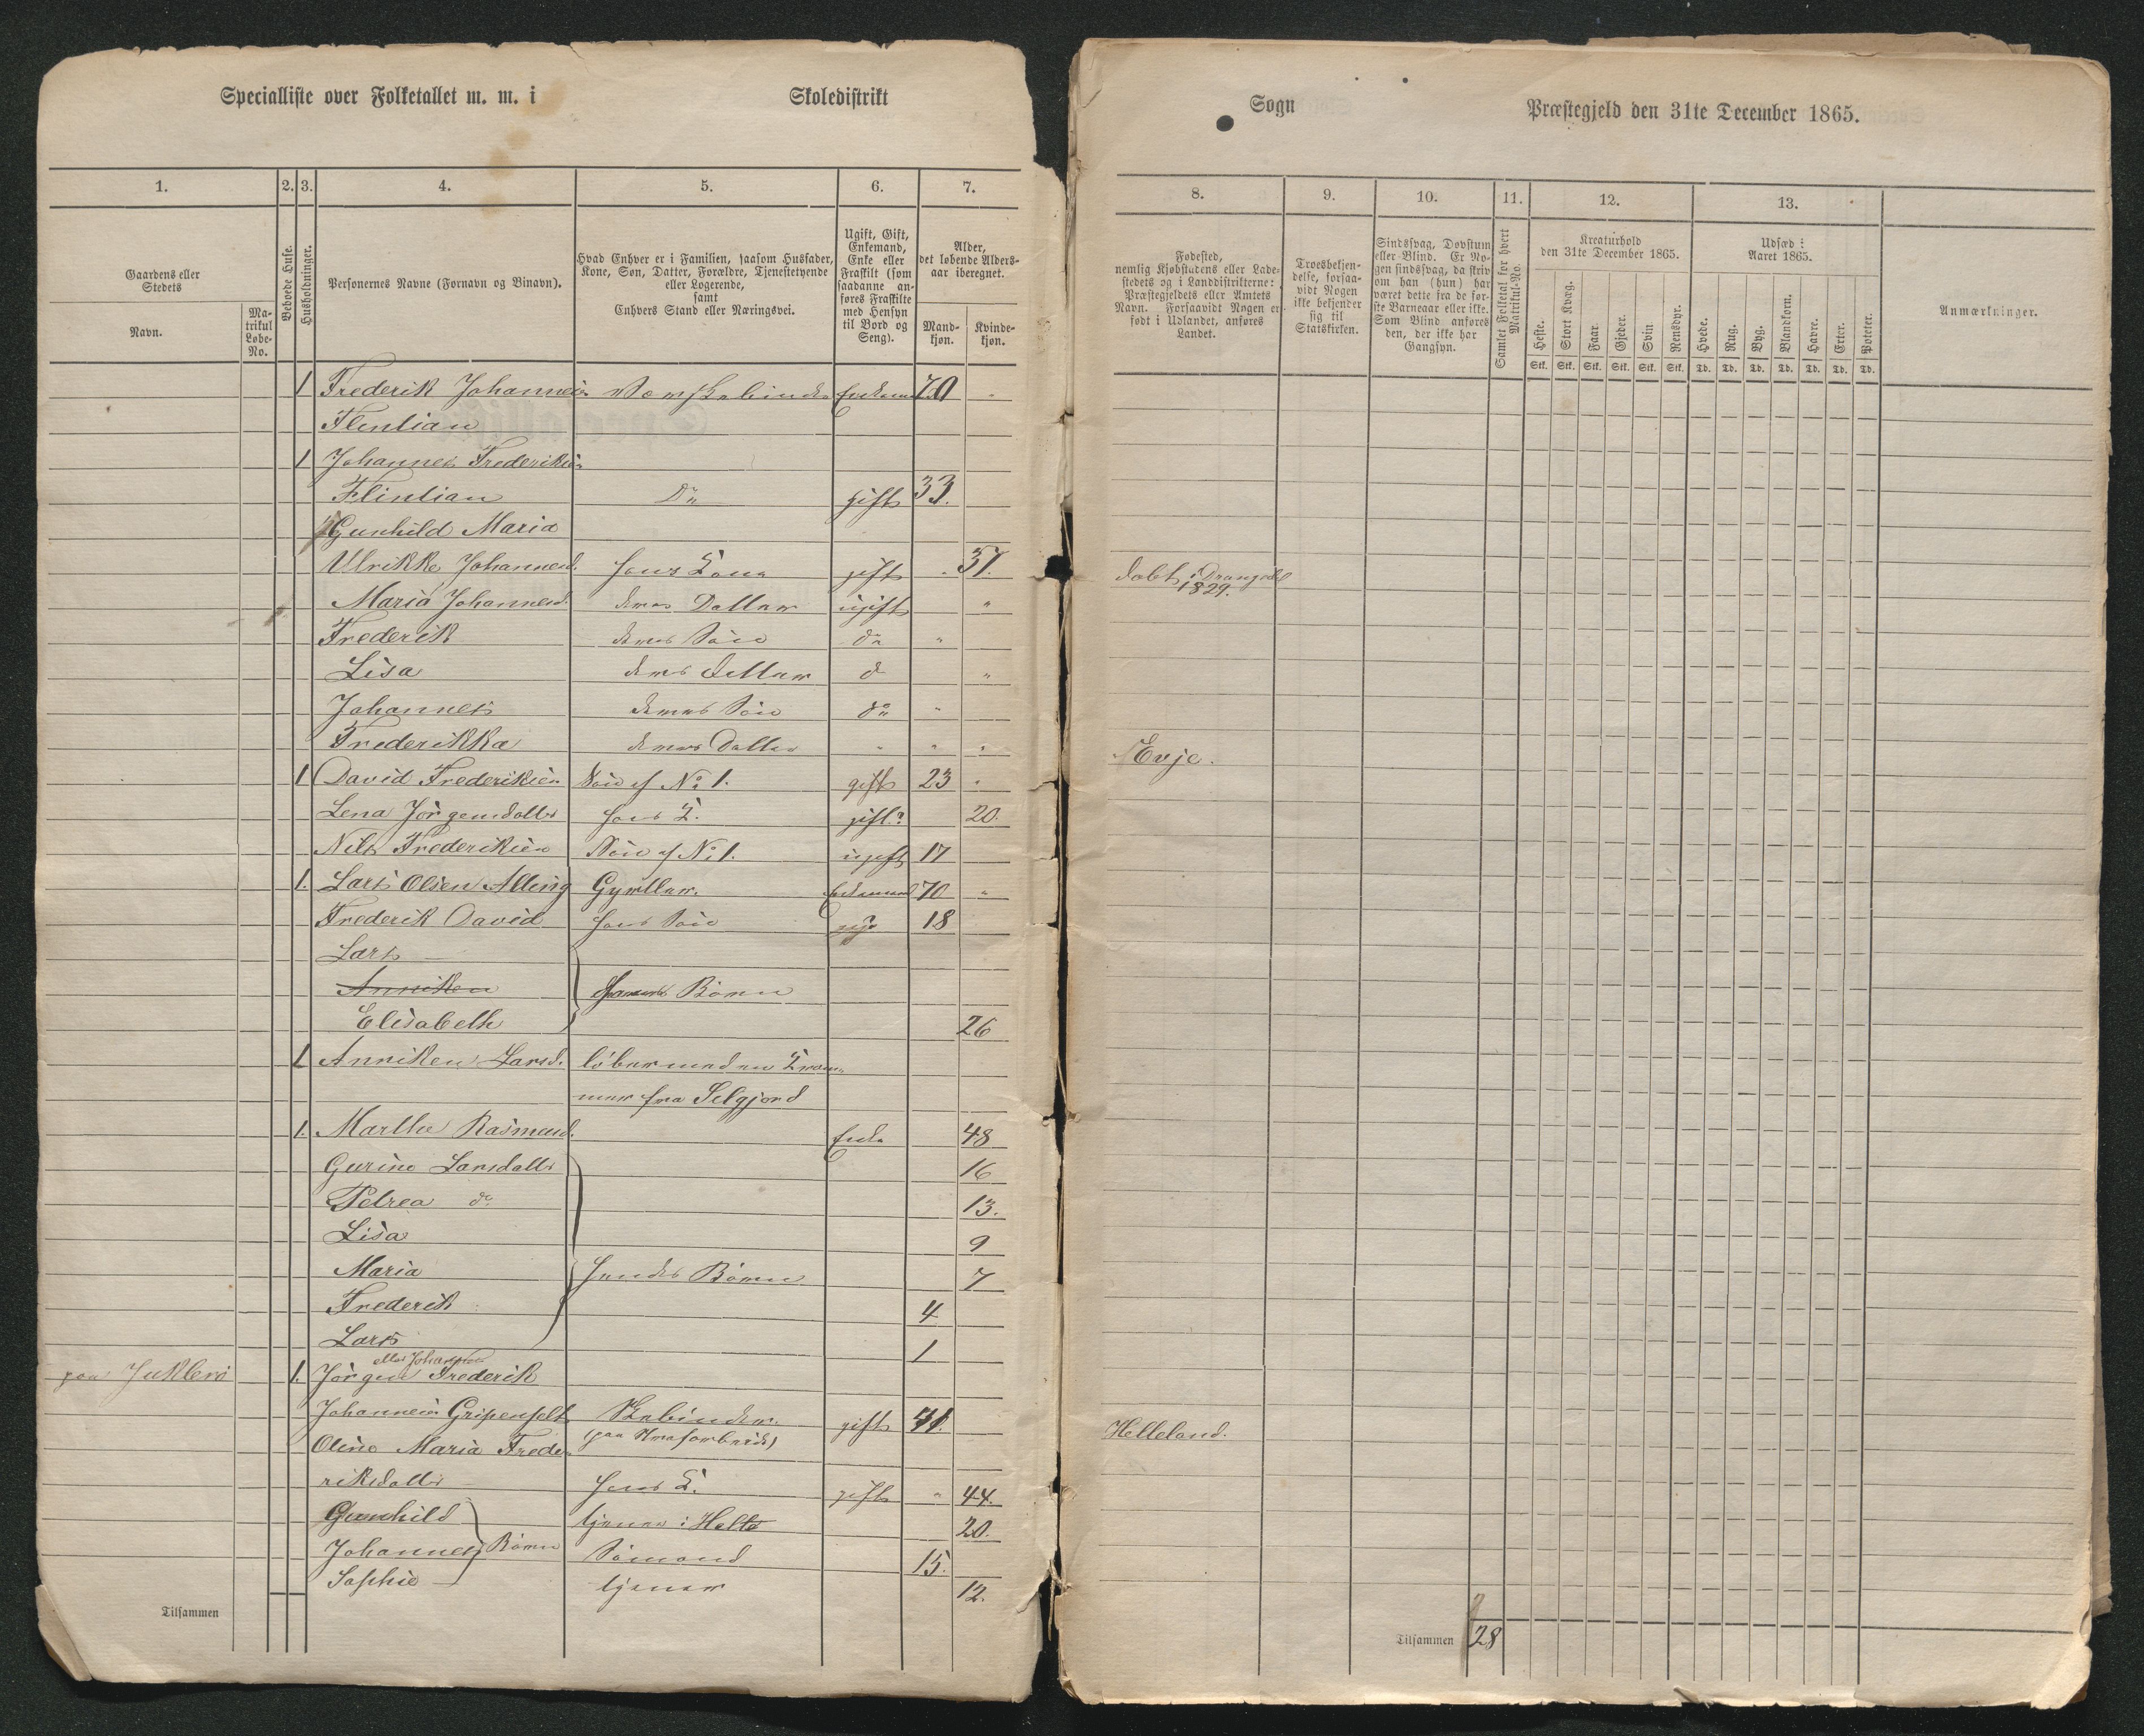 Specialliste over Folketallet m. m. i Skoledistrikt
Sogn Præstegjeld den 31te December 1865.
1. 2. 3. 4. 5. 6. 7.
Gaardens eller
Stedets
Navn.
Ma-
trikul
Løbe-
No.
Beboede Huse.
Husholdninger.
Personernes Navne (Fornavn og Binavn).
Hvad Enhver er i Familien, saasom Husfader,
Kone, Søn, Datter, Forældre, Tjenestetyende
eller Logerende,
samt
Enhvers Stand eller Næringsvei.
Ugift, Gift,
Enkemand,
Enke eller
Fraskilt (som
saadanne an-
føres Fraskilte
med Hensyn
til Bord og
Seng).
Alder,
det løbende Alders-
aar iberegnet.
Mand-
kjøn.
Kvinde-
kjøn.
1 Frederik Johannesen Enkem 70 "
Flintian
1 Johannes Frederiksen
Flintian Do gift 33.
Gunhild Maria
Ulrikke Johannesd. hans Kone gift 37.
Maria Johannesd. deres Datter ugift "
Frederik deres Søn do "
Lisa deres Datter d "
Johannes deres Søn do "
Frederikka deres Datter " " "
1 David Frederiksen Søn af No 1. gift 23 "
Lena Jörgensdatter hans K. gift? 20.
Nils Frederiksen Søn af No 1. ugift 17
1. Lars Olsen Alling Gjørtler. Enkemand 70 "
Frederik David hans Søn ug? 18
Lars —
Anniken Børn
Elisabeth 26
1 Anniken Larsd. løber med en
fra Selgjord
1. Marthe Rasmusd. Enke 48
Gurine Larsdatter 16
Petrea do 13.
Lisa 9
Maria hendes Børn 7
Frederik 4
Lars 1
eller Johannes
paa Juklerö 1. Jörgen Frederik
Johannesen Gripenfelt gift 41.
Oline Maria Frede-
riksdatter hans K. gift " 44.
Gunhild tjener i Helle 20.
Johannes Børn Sömand 15.
Sophie tjener 12.
Tilsammen
8. 9. 10. 11. 12. 13.
Fødested,
nemlig Kjøbstadens eller Lade-
stedets og i Landdistrikterne:
Præstegjeldets eller Amtets
Navn. Forsaavidt Nogen er
født i Udlandet, anføres
Landet.
Troesbekjen-
delse, forsaa-
vidt Nogen
ikke bekjender
sig til
Statskirken.
Sindssvag, Døvstum
eller Blind. Er No-
gen sindssvag, da skriv
om han (hun) har
været dette fra de før-
ste Barneaar eller ikke.
Som Blind anføres
den, der ikke har
Gangsyn.
Samlet Folketal for hvert
Matrikul-No.
Kreaturhold
den 31te December 1865.
Heste. Stort Kvæg. Faar. Gjeder. Svin Rensdyr.
Stk. Stk. Stk. Stk. Stk. Stk.
Udsæd i
Aaret 1865.
Hvede. Rug. Byg. Blandkorn. Havre. Erter. Poteter.
Td. Td. Td. Td. Td. Td. Td.
Anmærkninger.
døbt i Drangedal
1829.
Evje.
Helleland.
Tilsammen 28